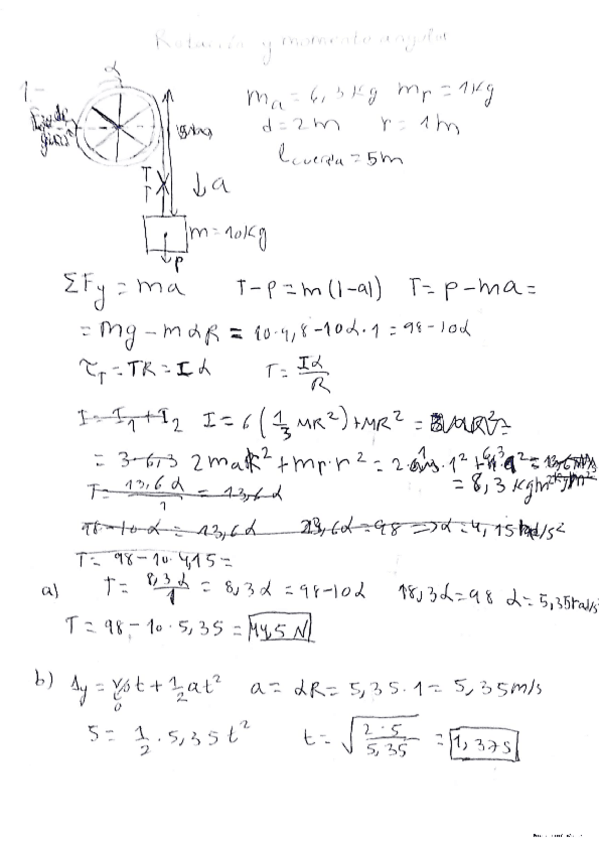 Rotación y momento angular
1-
α
Eje de giro
ma = 6,3 Kg mp = 1 Kg
d = 2 m r = 1 m
lcuerda = 5m
T
T
↓a
m = 10 Kg
P
ΣFy = ma T-P = m(-a) T = P-ma =
= mg - mαR = 10·9,8-10α·1 = 98-10α
τT = TR = Iα T = Iα/R
I = I1 + I2 I = 6(1/3 MR²)+MR² =
= 3·6,3 2maR² + mp·r² = = 8,3 Kgm²
T = 13,6α/1 = 13,6α
98-10α = 13,6α 23,6α = 98 => α = 4,15 rad/s²
T = 98-10·4,15 =
a) T = 8,3α/1 = 8,3α = 98-10α 18,3α = 98 α = 5,35 rad/s²
T = 98-10·5,35 = 44,5 N
b) Δy = v0t + 1/2 at² a = αR = 5,35·1 = 5,35 m/s
0
5 = 1/2 · 5,35 t² t = √(2·5/5,35) = 1,37 s